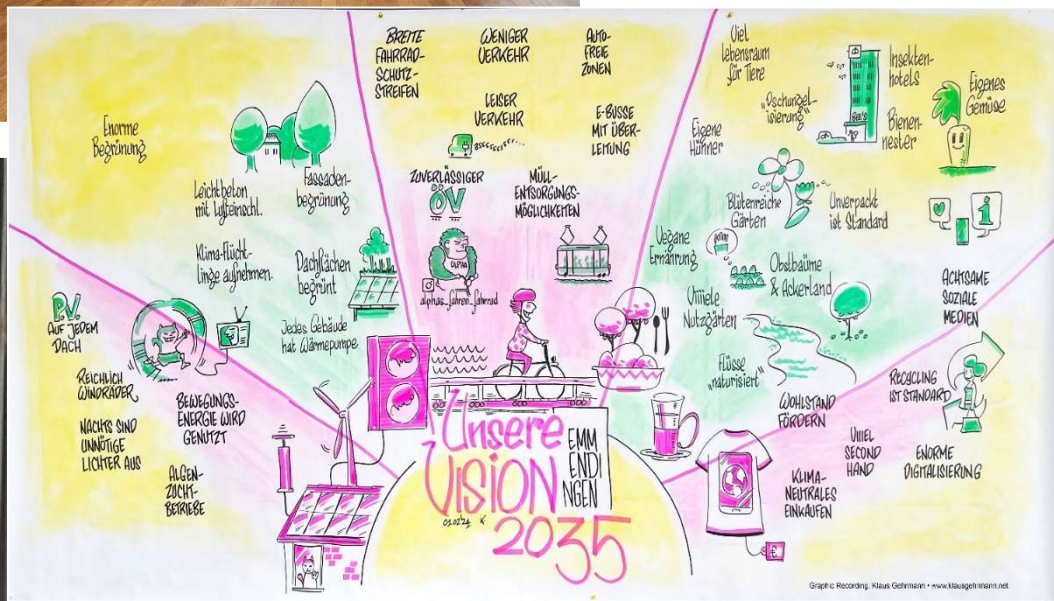 Enorme
Begrünung
Leichtbeton
mit Lufteinschl.
Fassaden-
begrünung
Klima-Flücht-
linge aufnehmen
Dachflächen
begrünt
Jedes Gebäude
hat Wärmepumpe
P.V.
AUF JEDEM
DACH
REICHLICH
WINDRÄDER
NACHTS SIND
UNNÖTIGE
LICHTER AUS
BEWEGUNGS-
ENERGIE WIRD
GENUTZT
ALGEN-
ZUCHT-
BETRIEBE
BREITE
FAHRRAD-
SCHUTZ-
STREIFEN
WENIGER
VERKEHR
AUTO-
FREIE
ZONEN
LEISER
VERKEHR
E-BUSSE
MIT ÜBER-
LEITUNG
ZUVERLÄSSIGER
ÖV
MÜLL-
ENTSORGUNGS-
MÖGLICHKEITEN
ALPHA
alphas_fahren_fahrrad
Viel
Lebensraum
für Tiere
„Dschungel-
isierung"
Insekten-
hotels
Bienen-
nester
Eigenes
Gemüse
Eigene
Hühner
Blütenreiche
Gärten
Unverpackt
ist Standard
Vegane
Ernährung
Obstbäume
& Ackerland
Viiiele
Nutzgärten
Flüsse
„naturisiert"
ACHTSAME
SOZIALE
MEDIEN
RECYCLING
IST STANDARD
WOHLSTAND
FÖRDERN
VIIIEL
SECOND
HAND
ENORME
DIGITALISIERUNG
KLIMA-
NEUTRALES
EINKAUFEN
Unsere
VISION
EMM
ENDI
NGEN
2035
Graphic Recording. Klaus Gehrmann • www.klausgehrmann.net